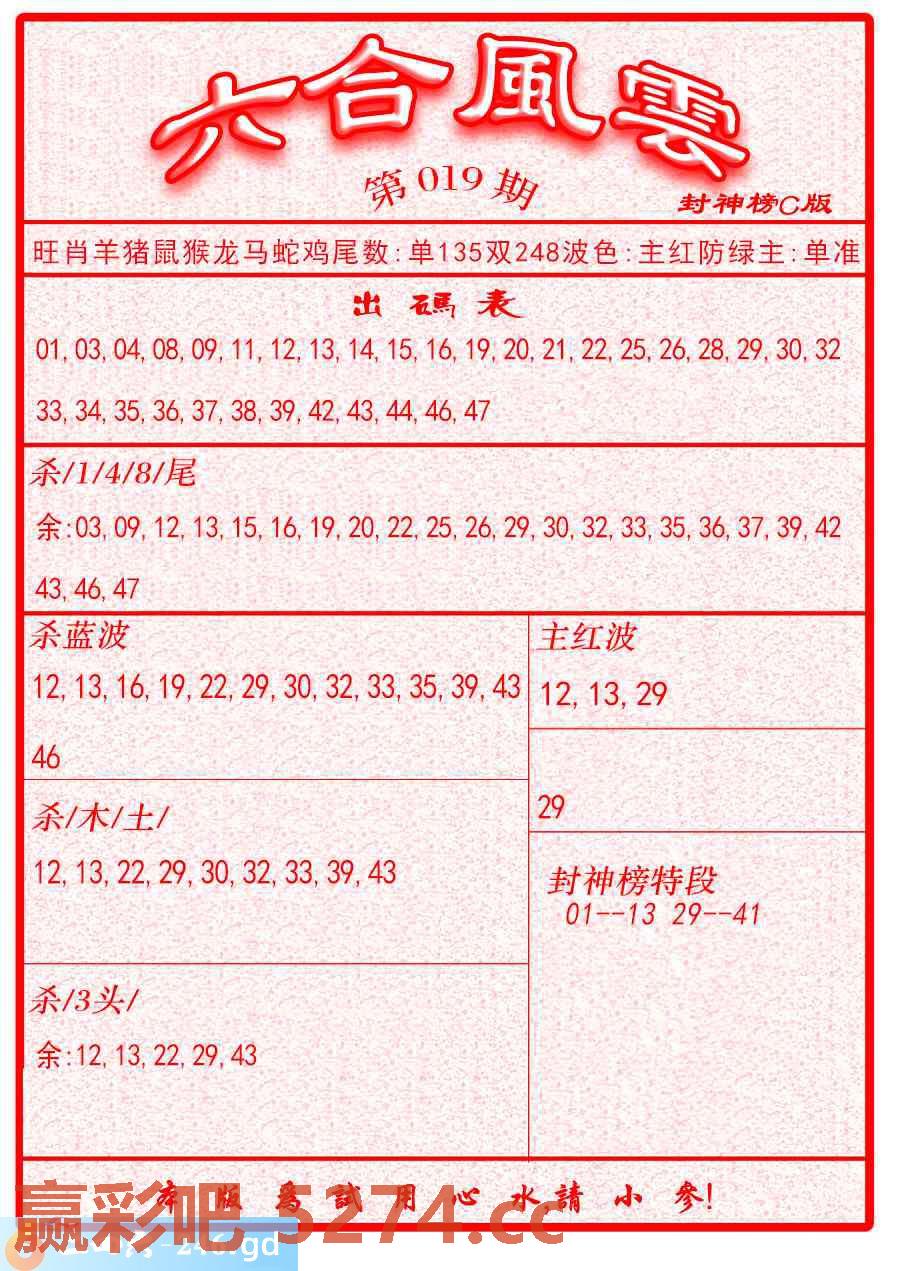 六合風雲
第019期
封神榜C版
旺肖羊猪鼠猴龙马蛇鸡尾数:单135双248波色:主红防绿主:单准
出碼表
01,03,04,08,09,11,12,13,14,15,16,19,20,21,22,25,26,28,29,30,32
33,34,35,36,37,38,39,42,43,44,46,47
杀/1/4/8/尾
余:03,09,12,13,15,16,19,20,22,25,26,29,30,32,33,35,36,37,39,42
43,46,47
杀蓝波
12,13,16,19,22,29,30,32,33,35,39,43
46
杀/木/土/
12,13,22,29,30,32,33,39,43
杀/3头/
余:12,13,22,29,43
主红波
12,13,29
29
封神榜特段
01--13 29--41
本版為試用心水請小參!
赢彩吧 5274.cc
-246.gd